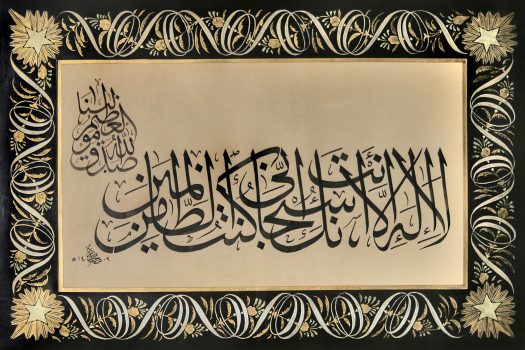 صدق الله مولانا العظيم
لا إله إلا أنت سبحانك إني كنت من الظالمين